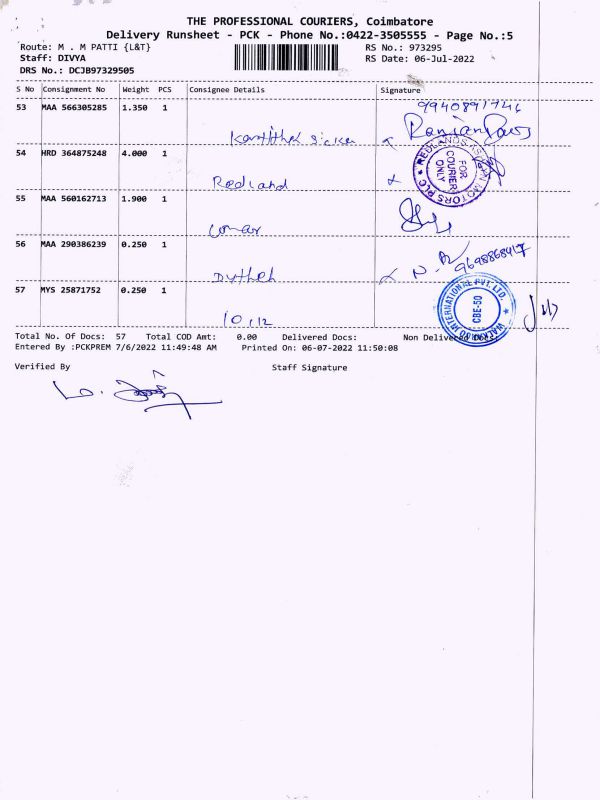 THE PROFESSIONAL COURIERS, Coimbatore
Delivery Runsheet - PCK - Phone No.:0422-3505555 - Page No.:5
Route: M . M PATTI {L&T} RS No.: 973295
Staff: DIVYA RS Date: 06-Jul-2022
DRS No.: DCJB97329505
S No Consignment No Weight PCS Consignee Details Signature
53 MAA 566305285 1.350 1
54 HRD 364875248 4.000 1
REDLANDS ASHLYN MOTORS PLC
FOR COURIER ONLY
Redland
55 MAA 560162713 1.900 1
56 MAA 290386239 0.250 1
9698868417
57 MYS 25871752 0.250 1
INTERNATIONAL PVT LTD.
CBE-50
Total No. Of Docs: 57 Total COD Amt: 0.00 Delivered Docs: Non Delivered Docs:
Entered By :PCKPREM 7/6/2022 11:49:48 AM Printed On: 06-07-2022 11:50:08
Verified By Staff Signature